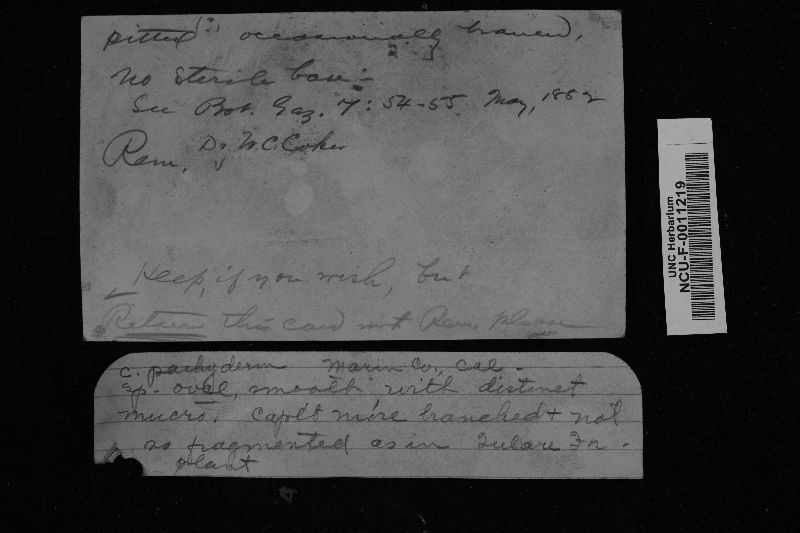 pitted (?) occasionally branched,
No sterile base:-
See Bot. Gaz. 7: 54-55 May, 1882
Rem. Dr. W.C. Coker
Keep, if you wish, but
Return this card with Rem. please
C. pachyderm Marin Co., Cal -
Sp. oval, smooth, with distinct
mucro. Cap't more branched + not
so fragmented as in Tulare
plant
UNC Herbarium
NCU-F-0011219